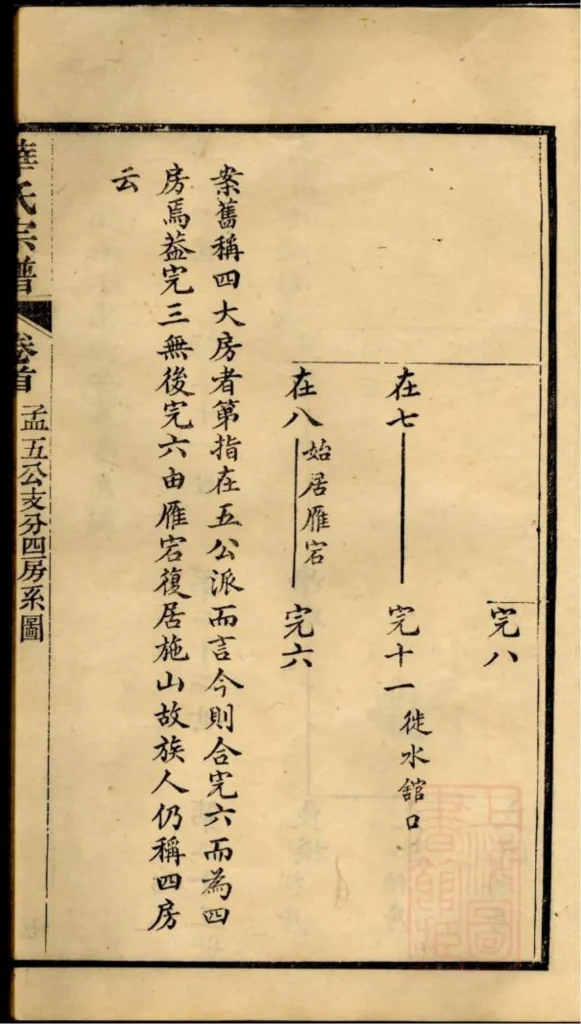 完八
在七
完十一
徙水舘口
在八
始居雁宕
完六
案舊稱四大房者第指在五公派而言今則合完六而為四
房焉葢完三無後完六由雁宕復居施山故族人仍稱四房
云
華氏宗譜
卷首
孟五公支分四房系圖